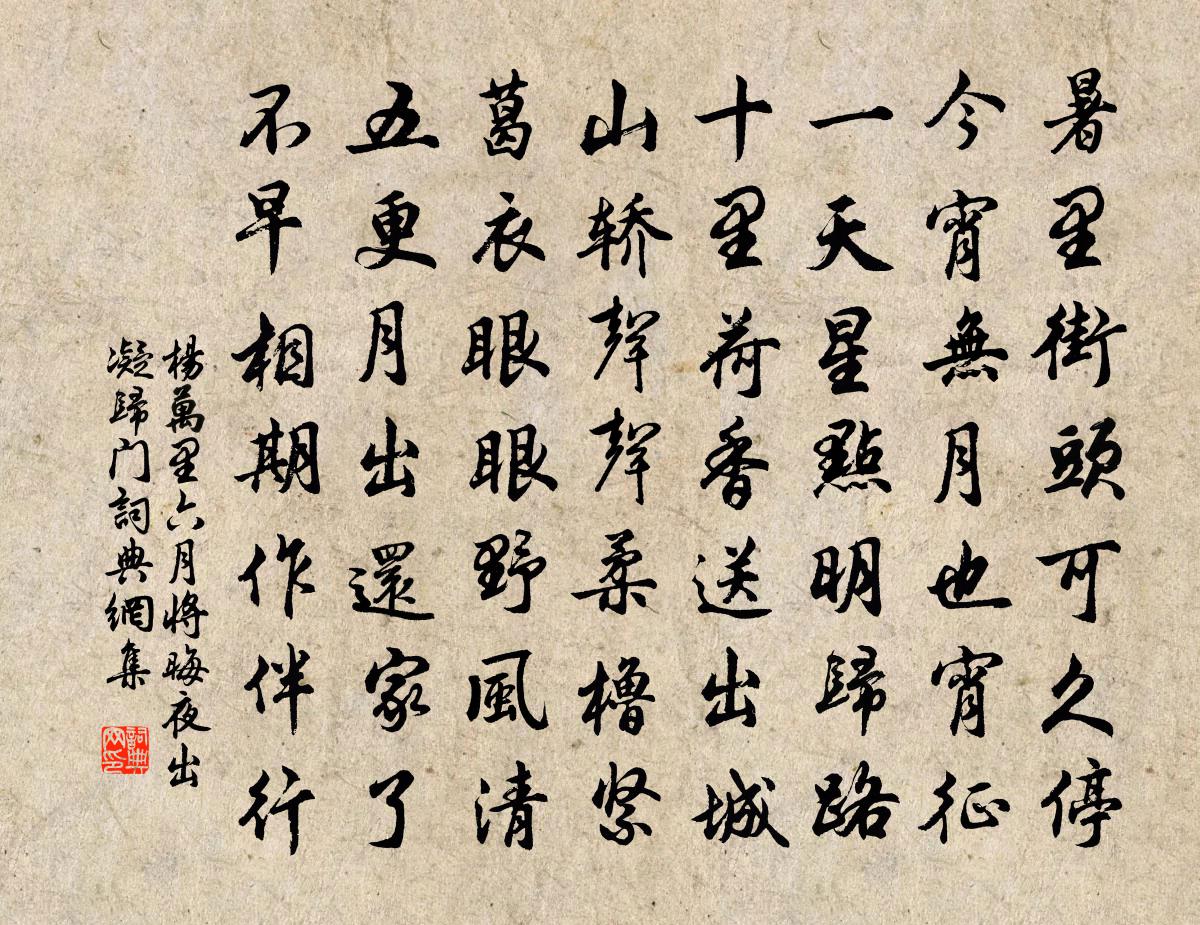 暑里街頭可久停
今宵無月也宵征
一天星點明歸路
十里荷香送出城
山轿聲聲柔櫓紧
葛衣眼眼野風清
五更月出還家了
不早相期作伴行
楊萬里六月将晦夜出
凝歸门詞典網集
詞典网印